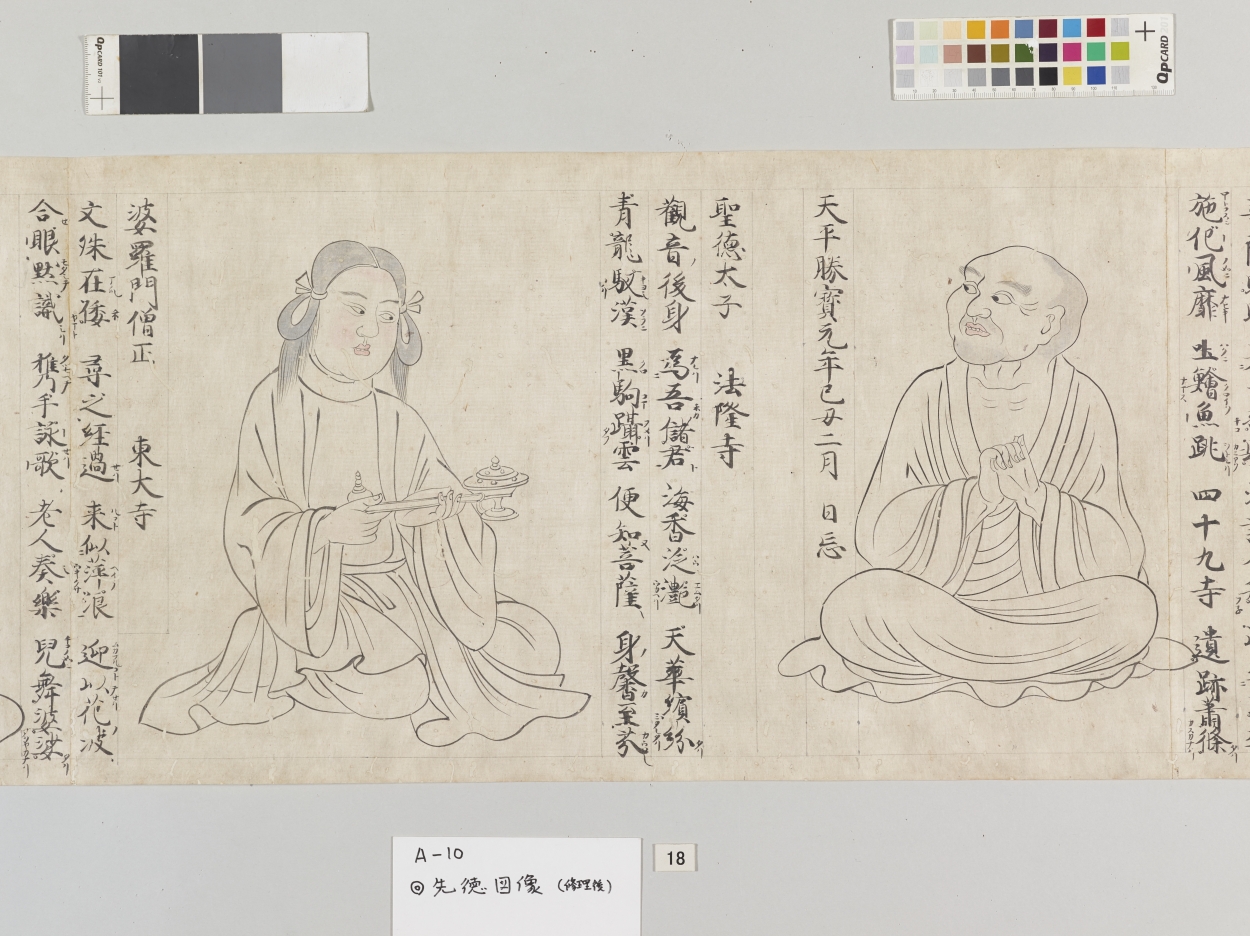 施化風靡 吐鱠魚跳 四十九寺 遺跡蕭條
天平勝寶元年己丑二月 日忌
聖德太子 法隆寺
觀音後身 爲吾儲君 海香泛灔 天華繽紛
青龍馭漢 黑駒躡雲 便知菩薩 身馨至芬
婆羅門僧正 東大寺
文殊在倭 尋之経過 来似萍浪 迎以花波
合眼黙識 携手詠歌 老人奏樂 兒舞婆娑
A-10
◎先徳図像 (修理後)
18
QPCARD 101
QPCARD 201